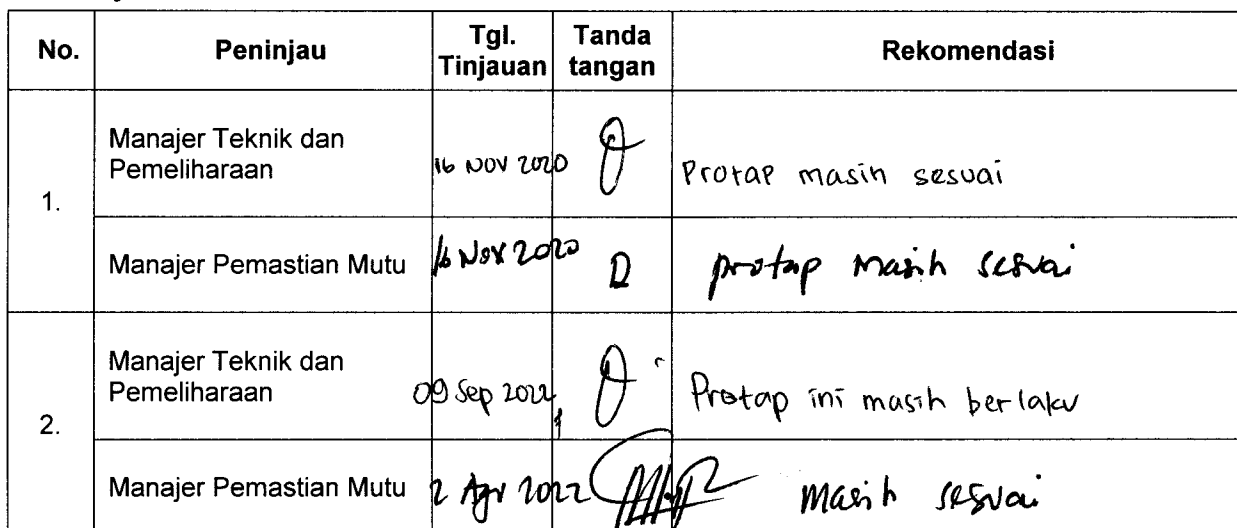 No. Peninjau Tgl. Tinjauan Tanda tangan Rekomendasi
1.
Manajer Teknik dan
Pemeliharaan 16 NOV 2020 Protap masih sesuai
Manajer Pemastian Mutu 16 Nov 2020 protap masih sesuai
2.
Manajer Teknik dan
Pemeliharaan 09 Sep 2022 Protap ini masih berlaku
Manajer Pemastian Mutu 2 Agu 2022 masih sesuai